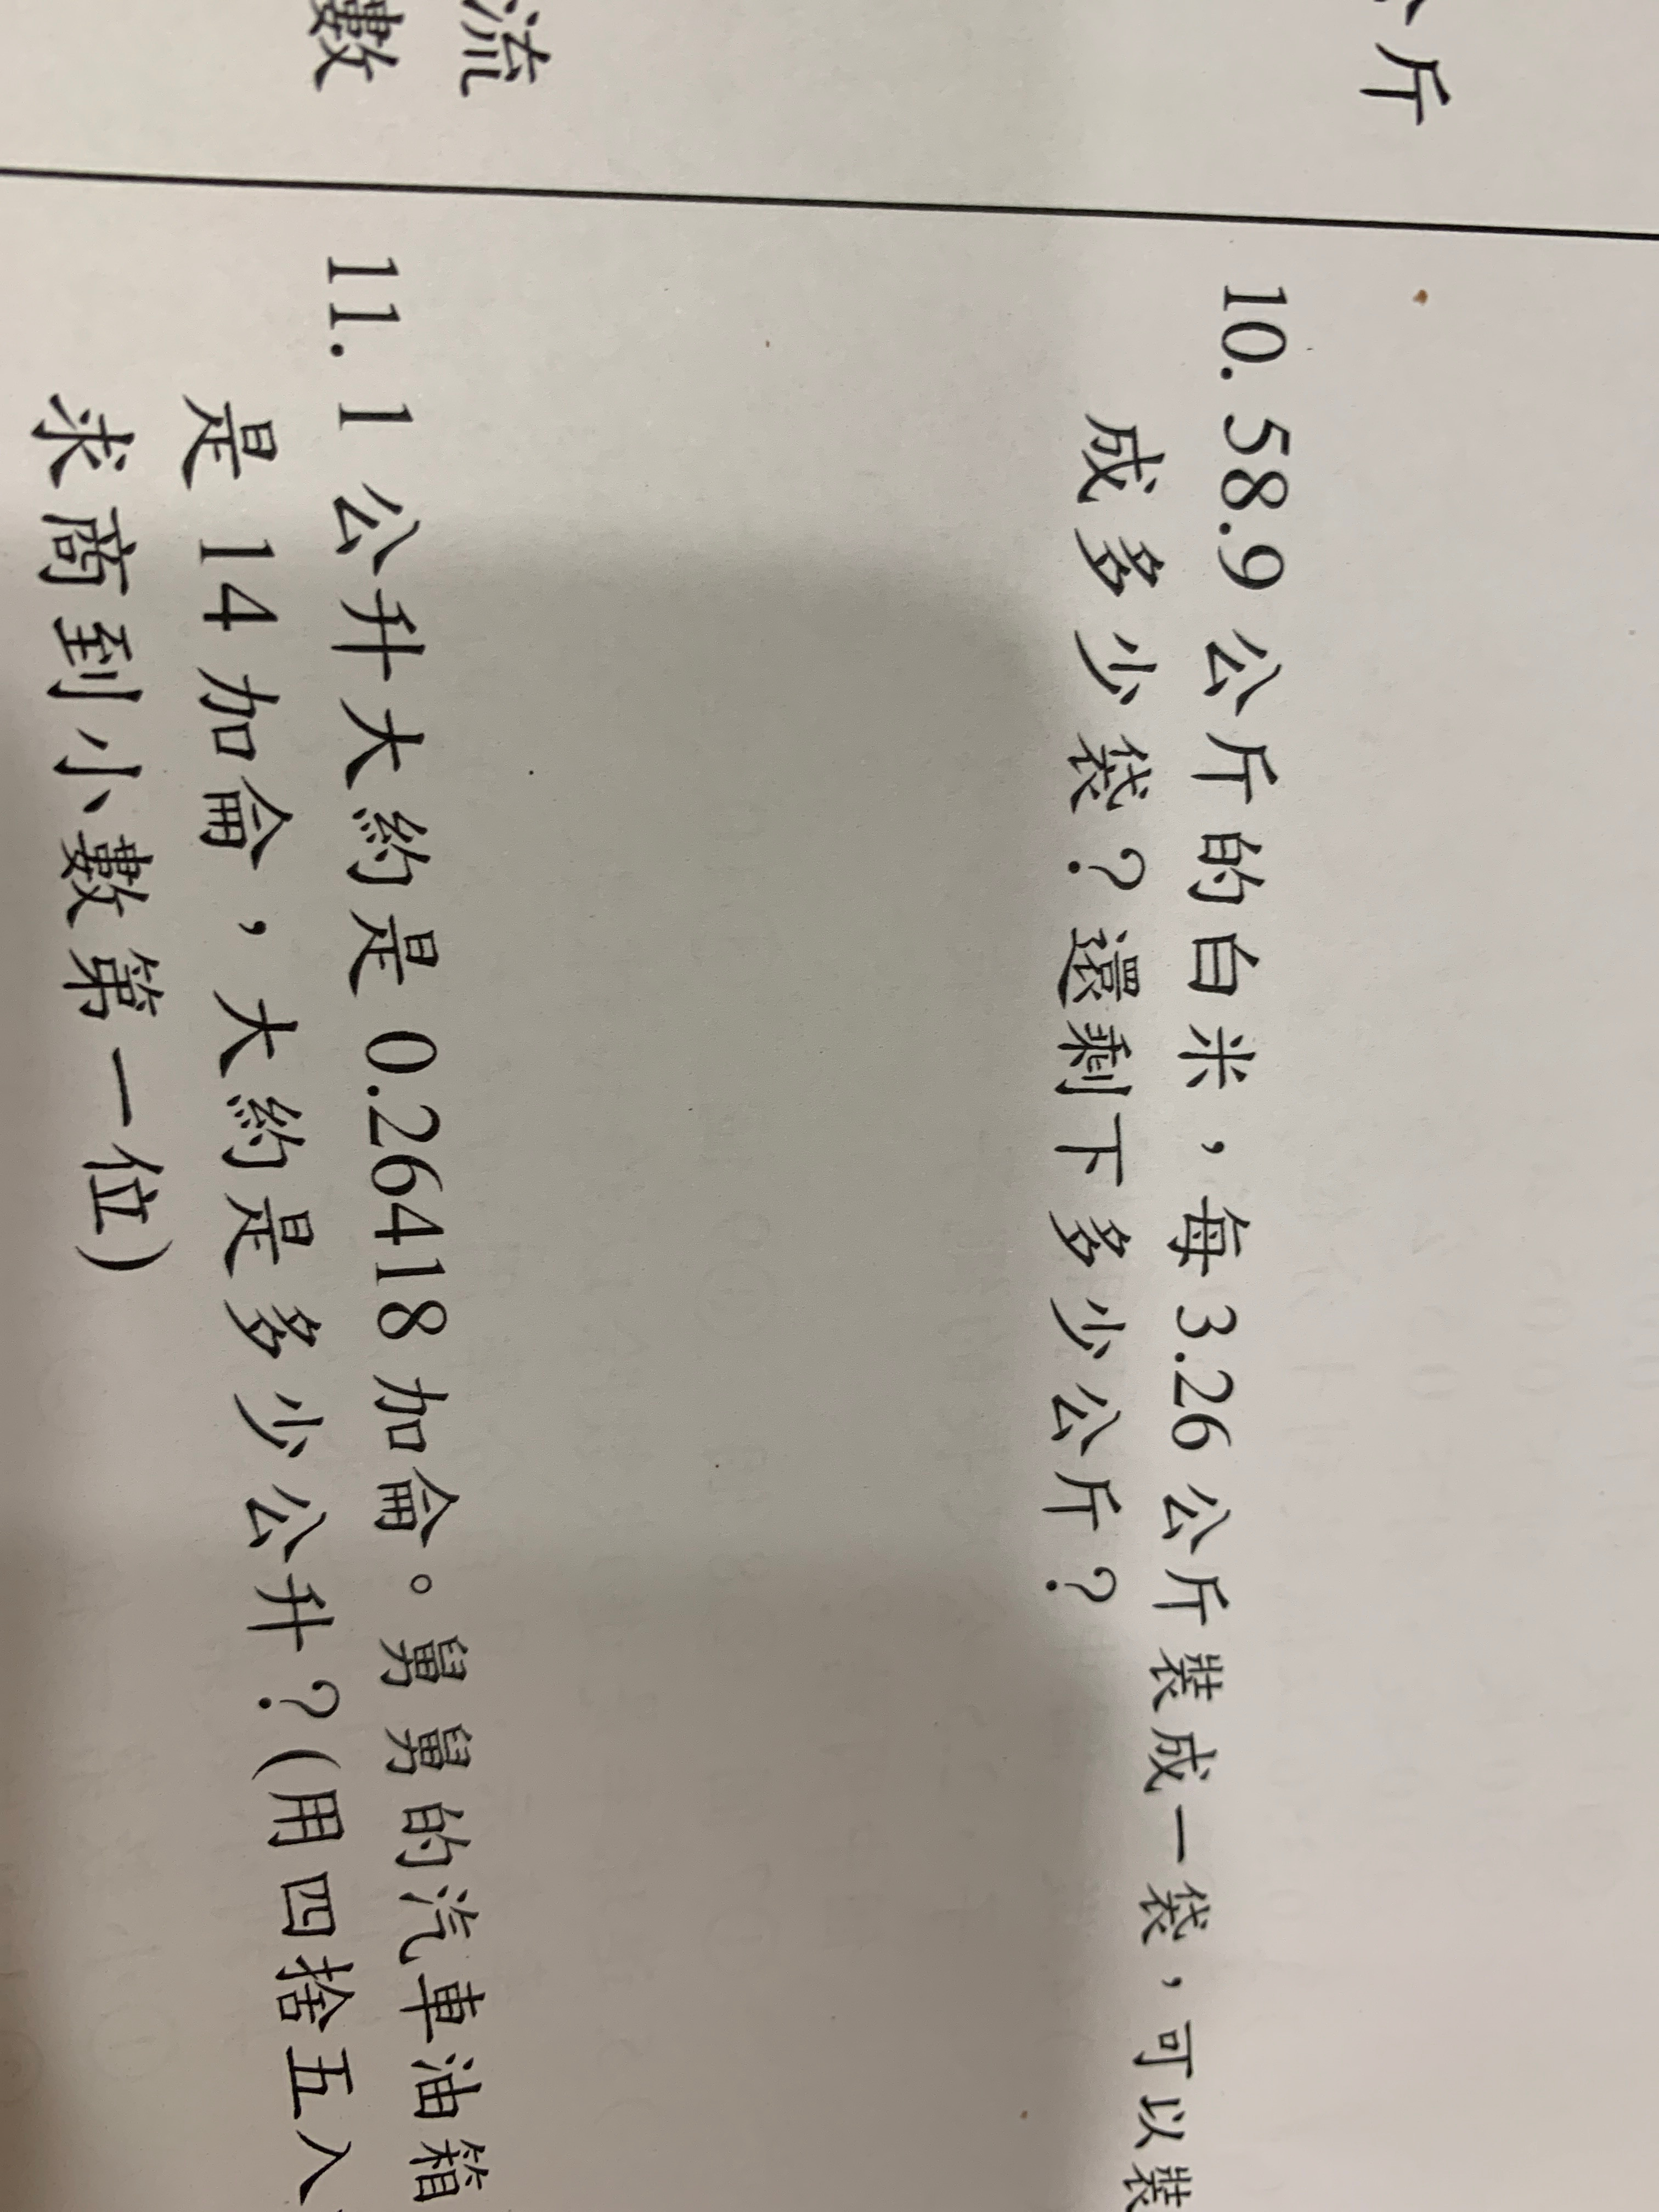 斤
10. 58.9 公斤的白米，每 3.26 公斤裝成一袋，可以裝
成多少袋？還剩下多少公斤？
流
數
11. 1 公升大約是 0.26418 加侖。舅舅的汽車油箱
是 14 加侖，大約是多少公升？(用四捨五入
求商到小數第一位)